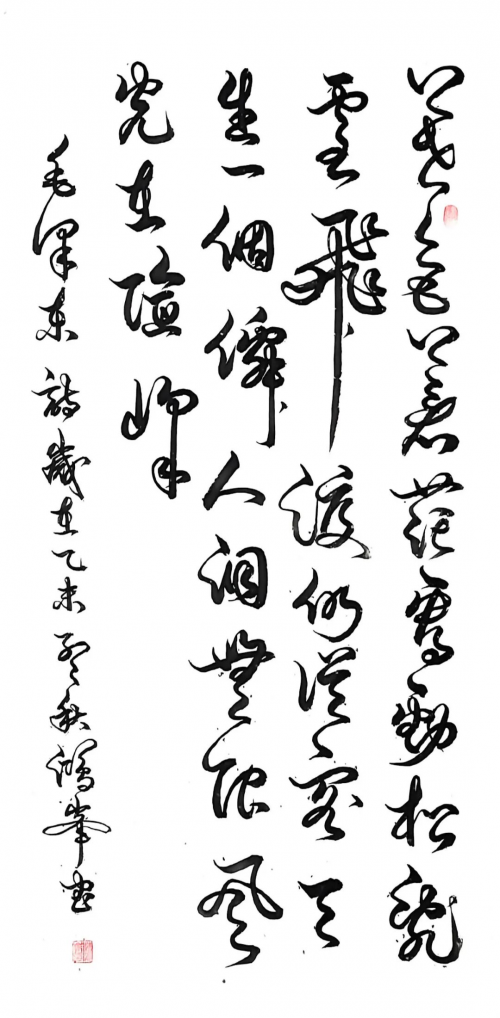 暮色蒼茫看勁松亂
雲飛渡仍從容天
生一個僊人洞無限風
光在險峰
毛澤東詩歲在乙未秋鴻峯書